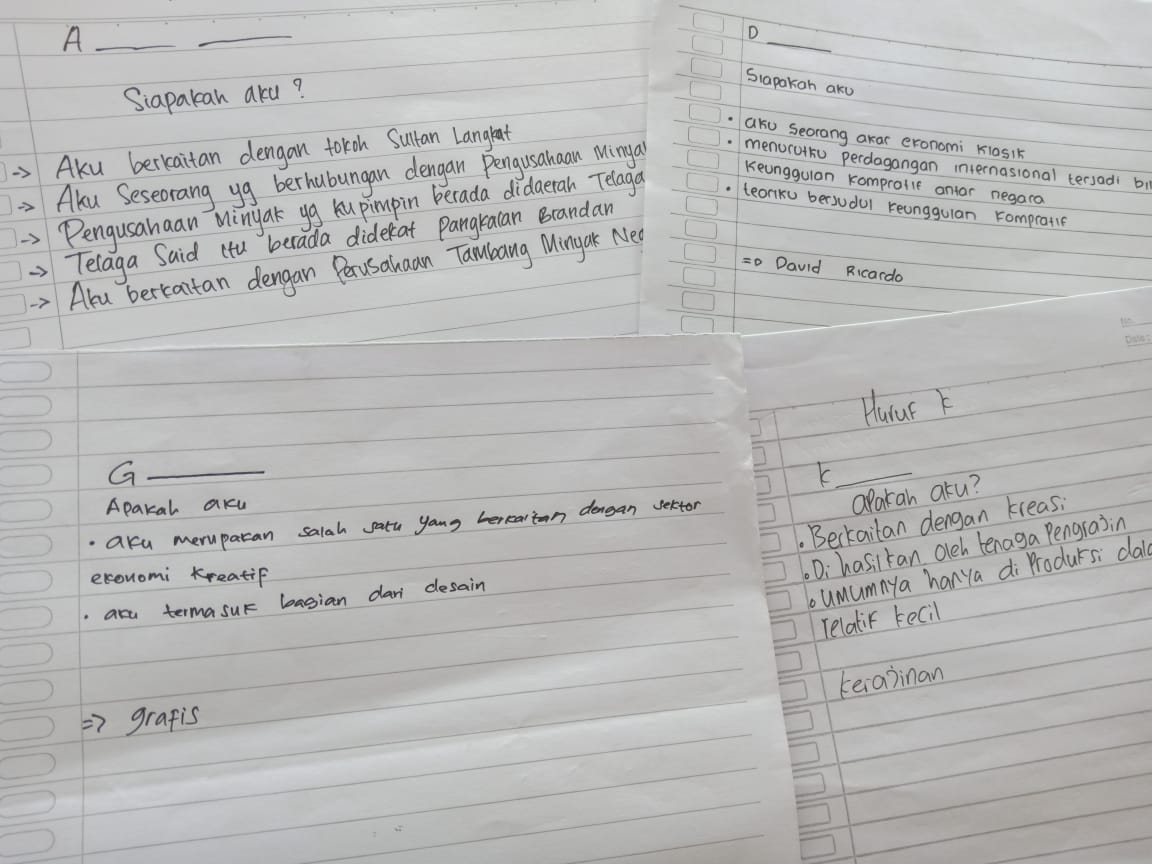 A ____ ____
Siapakah aku ?
-> Aku berkaitan dengan tokoh Sultan Langkat
-> Aku Seseorang yg berhubungan dengan Pengusahaan Minya
-> Pengusahaan Minyak yg ku pimpin berada didaerah Telaga
-> Telaga Said itu berada didekat Pangkalan Brandan
-> Aku berkaitan dengan Perusahaan Tambang Minyak Neg
D ____
Siapakah aku
• aku seorang akar ekonomi klasik
• menurutku perdagangan internasional terjadi
keunggulan kompratif antar negara
• teoriku bersudul keunggulan kompratif
=> David Ricardo
G ____
Apakah aku
• aku merupakan salah satu yang berkaitan dengan sektor
ekonomi kreatif
• aku termasuk bagian dari desain
=> grafis
No.
Date :
Huruf k
k ____
apakah aku?
• Berkaitan dengan kreasi
• Di hasilkan oleh tenaga Pengrajin
• umumnya hanya di Produksi dala
relatif kecil
kerajinan